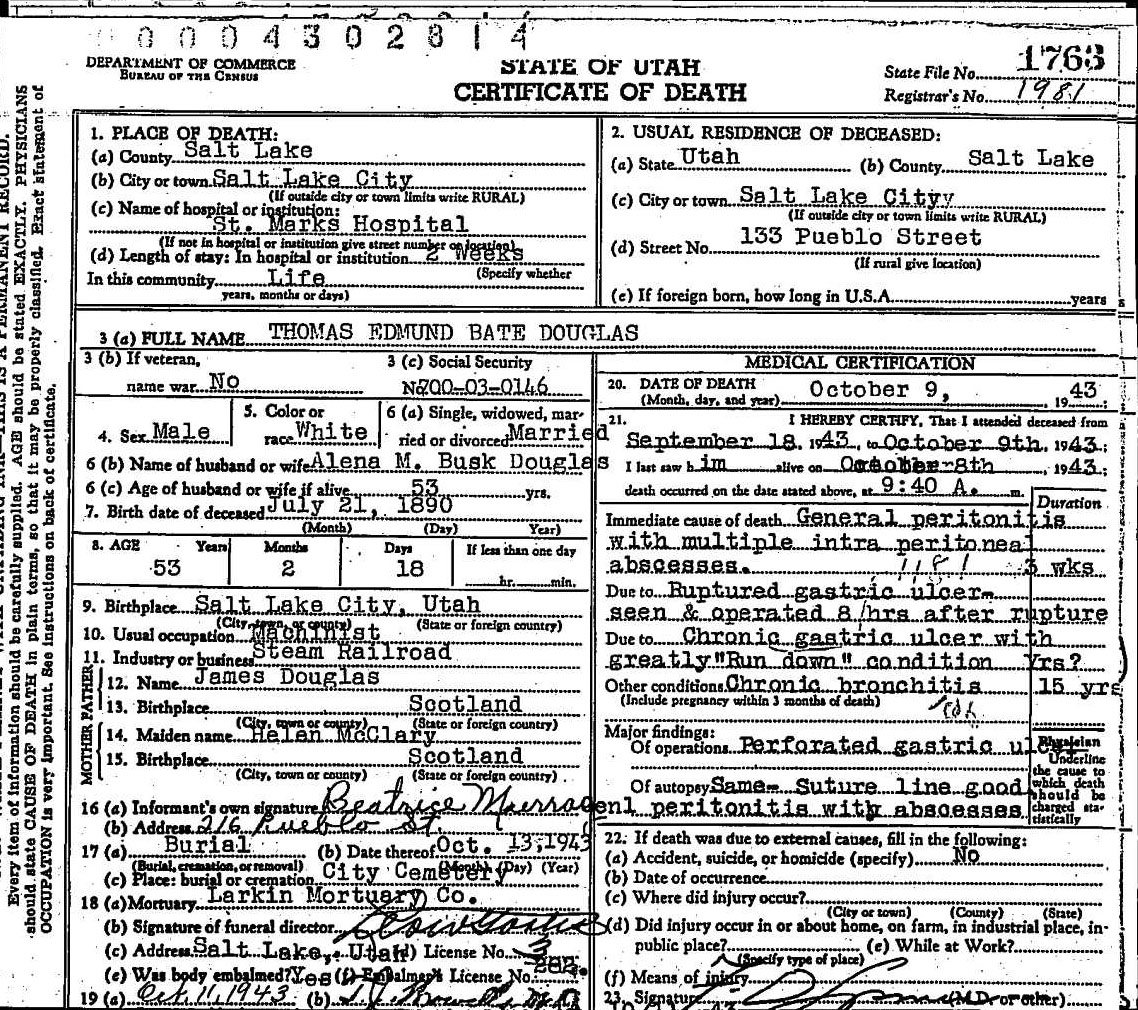 0 0 0 0 4 3 0 2 8 1 4
DEPARTMENT OF COMMERCE
BUREAU OF THE CENSUS
STATE OF UTAH
CERTIFICATE OF DEATH
State File No. 1763
Registrar's No. 1981
Every item of information should be carefully supplied. AGE should be stated EXACTLY. PHYSICIANS
should state CAUSE OF DEATH in plain terms, so that it may be properly classified. Exact statement of
OCCUPATION is very important. See instructions on back of certificate.
1. PLACE OF DEATH:
(a) County Salt Lake
(b) City or town Salt Lake City
(If outside city or town limits write RURAL)
(c) Name of hospital or institution:
St. Marks Hospital
(If not in hospital or institution give street number or location)
(d) Length of stay: In hospital or institution 2 Weeks
(Specify whether
In this community Life
years, months or days)
2. USUAL RESIDENCE OF DECEASED:
(a) State Utah (b) County Salt Lake
(c) City or town Salt Lake Cityy
(If outside city or town limits write RURAL)
(d) Street No. 133 Pueblo Street
(If rural give location)
(e) If foreign born, how long in U.S.A. years
3 (a) FULL NAME THOMAS EDMUND BATE DOUGLAS
3 (b) If veteran, name war No
3 (c) Social Security No. 700-03-0146
4. Sex Male
5. Color or race White
6 (a) Single, widowed, married or divorced Married
6 (b) Name of husband or wife Alena M. Busk Douglas
6 (c) Age of husband or wife if alive 53 yrs.
7. Birth date of deceased July 21, 1890
(Month) (Day) Year)
8. AGE Years Months Days If less than one day
53 2 18 hr. min.
9. Birthplace Salt Lake City, Utah
(City, town, or county) (State or foreign country)
10. Usual occupation Machinist
11. Industry or business Steam Railroad
FATHER
12. Name James Douglas
13. Birthplace Scotland
(City, town or county) (State or foreign country)
MOTHER
14. Maiden name Helen McClary
15. Birthplace Scotland
(City, town or county) (State or foreign country)
16 (a) Informant's own signature Beatrice
(b) Address 216 Pueblo St.
17 (a) Burial (b) Date thereof Oct. 13, 1943
(Burial, cremation, or removal) (Month) (Day) (Year)
(c) Place: burial or cremation City Cemetery
18 (a) Mortuary Larkin Mortuary Co.
(b) Signature of funeral director
(c) Address Salt Lake, Utah (d) License No. 3
(e) Was body embalmed? Yes (f) Embalmer's License No.
19 (a) Oct. 11, 1943 (b)
MEDICAL CERTIFICATION
20. DATE OF DEATH October 9, 1943
(Month, day, and year)
21. I HEREBY CERTIFY, That I attended deceased from
September 18, 1943, to October 9th, 1943;
I last saw him alive on October 8th, 1943;
death occurred on the date stated above, at 9:40 A. m.
Duration
Immediate cause of death General peritonitis
with multiple intra peritoneal
abscesses. 3 wks
Due to Ruptured gastric ulcer-
seen & operated 8 hrs after rupture
Due to Chronic gastric ulcer with
greatly "Run down" condition Yrs?
Other conditions Chronic bronchitis 15 yrs
(Include pregnancy within 3 months of death)
Major findings:
Of operations Perforated gastric ulcer
Of autopsy Same- Suture line good
genl peritonitis with abscesses
Physician
Underline
the cause to
which death
should be
charged sta-
tistically
22. If death was due to external causes, fill in the following:
(a) Accident, suicide, or homicide (specify) No
(b) Date of occurrence
(c) Where did injury occur?
(City or town) (County) (State)
(d) Did injury occur in or about home, on farm, in industrial place, in-
public place? (e) While at Work?
(Specify type of place)
(f) Means of injury
23. Signature (M.D. or other)